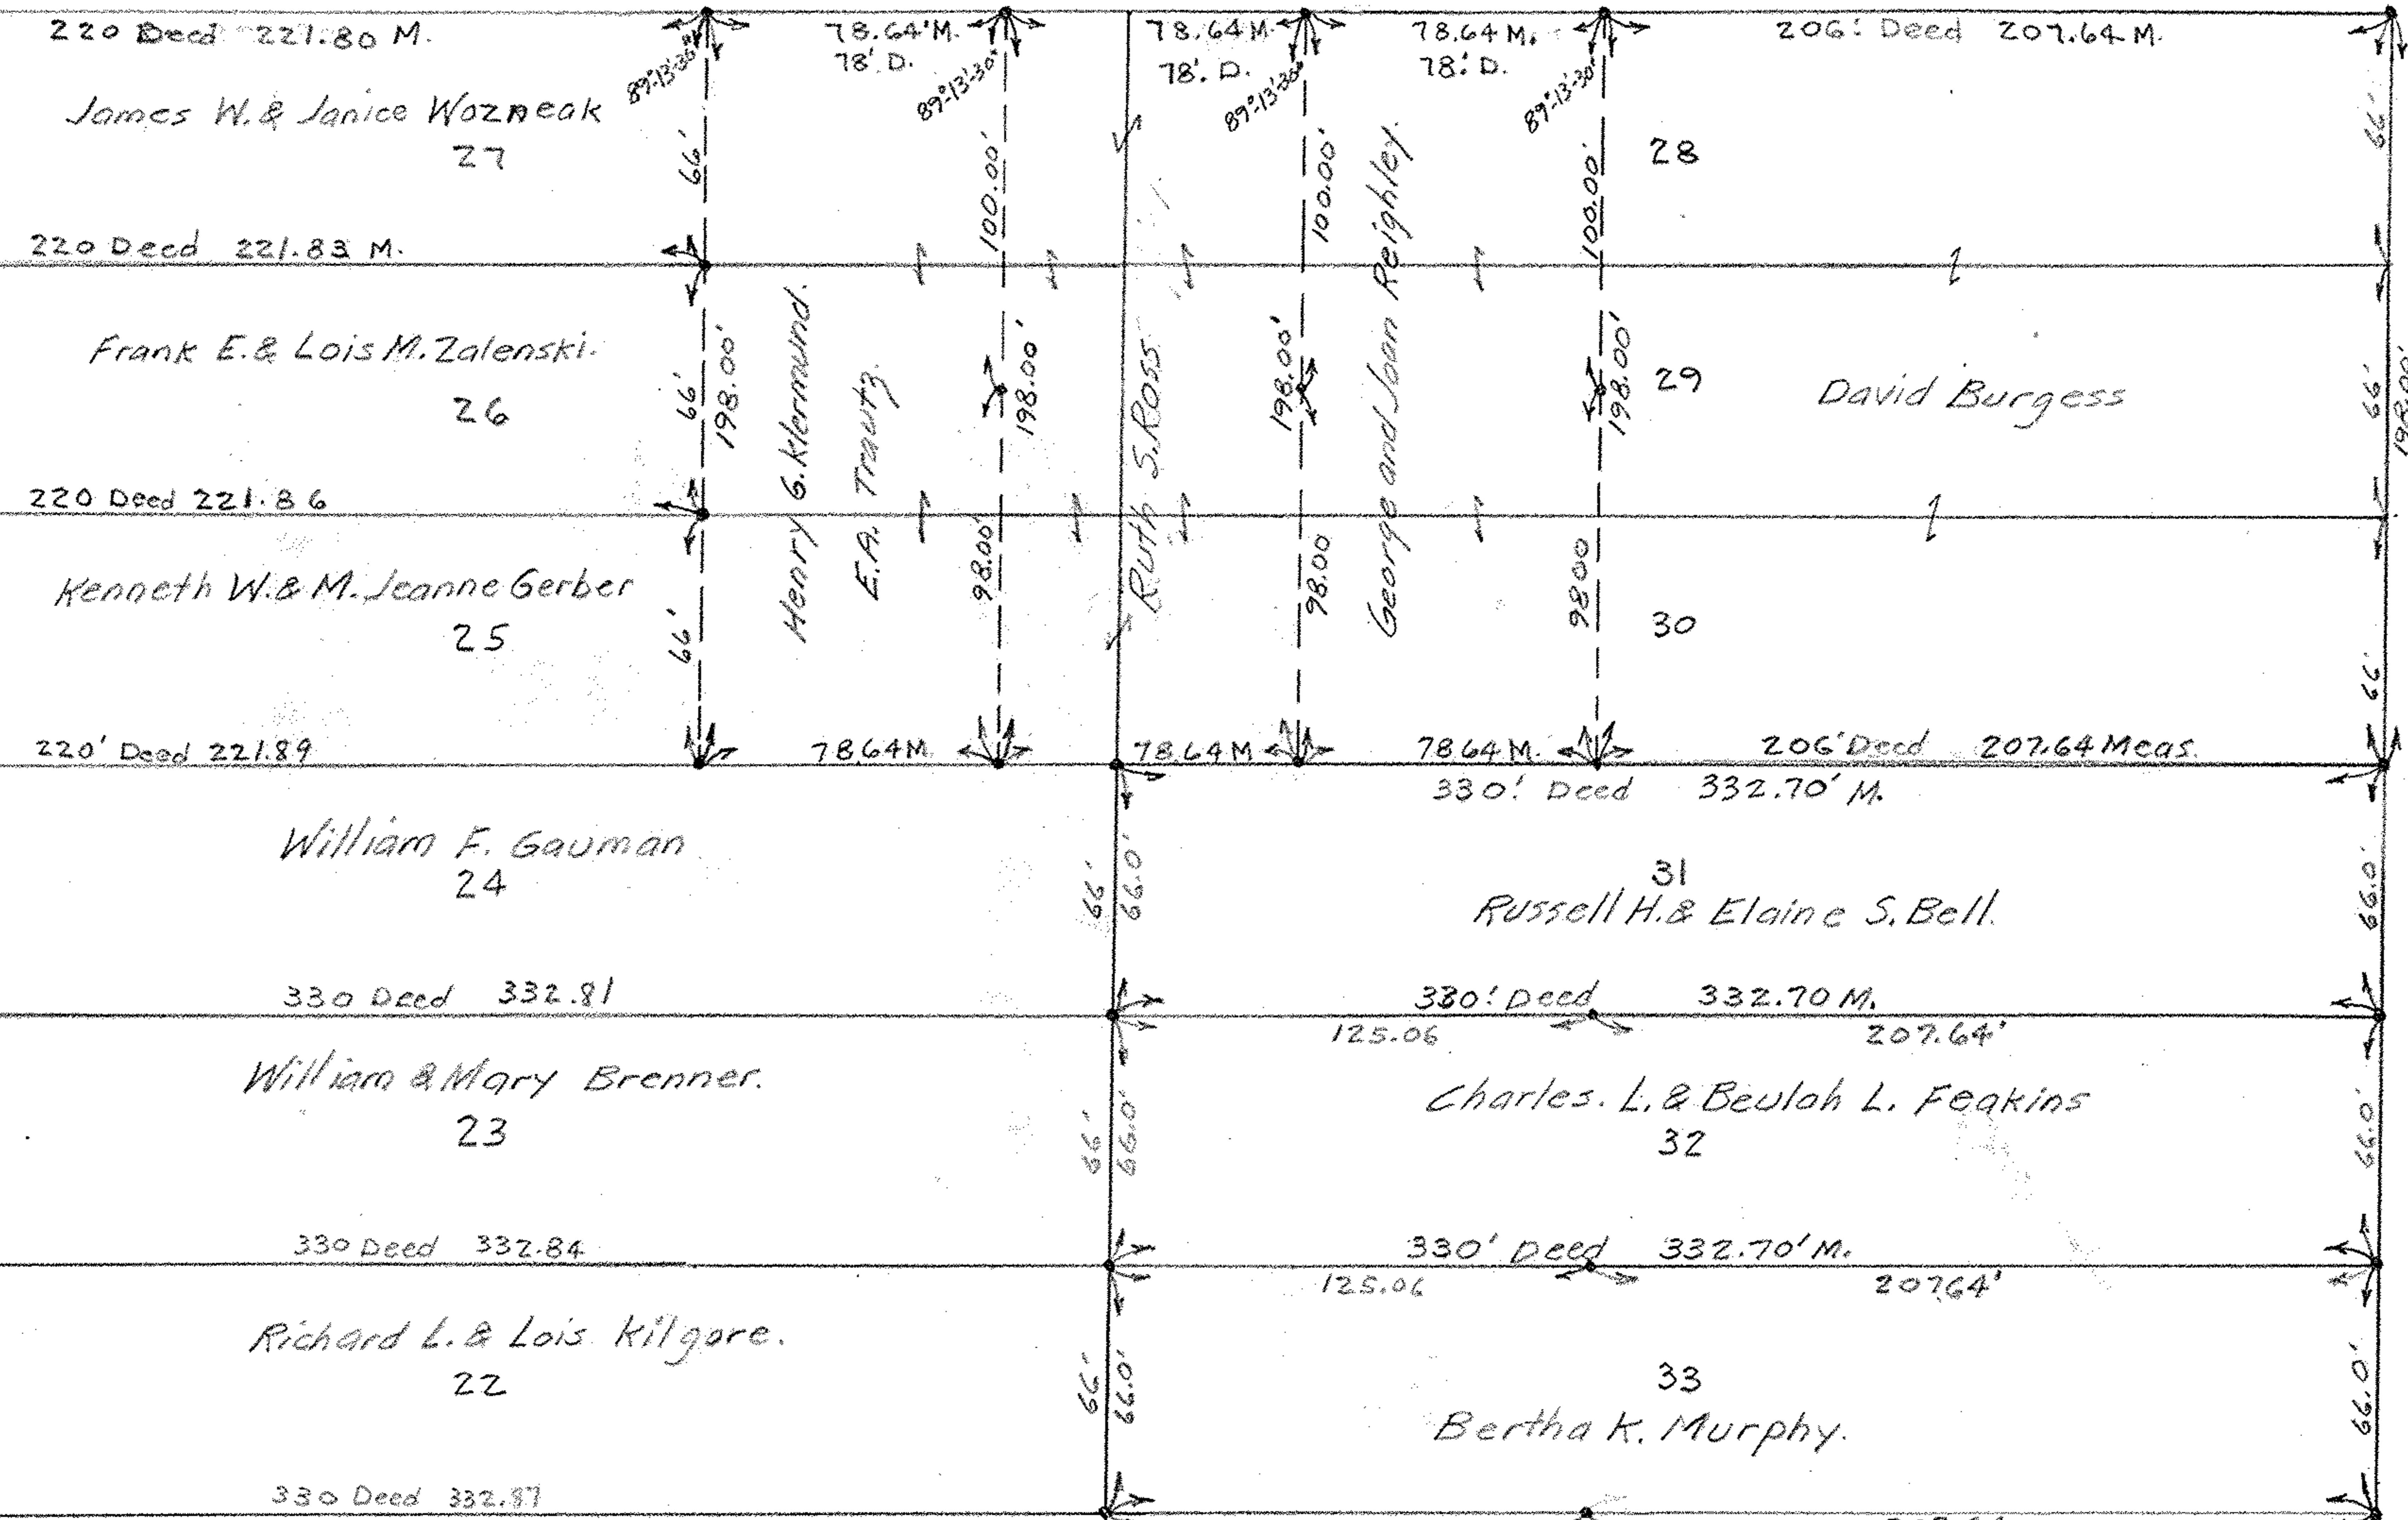 220 Deed 221.80 M.
78.64' M.
78' D.
78.64 M.
78'. D.
78.64 M.
78'. D.
206' Deed 207.64 M.
89°-13'-30"
89°-13'-30"
89°-13'-30"
89°-13'-30"
James W. & Janice Wozneak
27
66'
100.00'
100.00'
100.00'
28
66'
220 Deed 221.83 M.
Frank E. & Lois M. Zalenski.
26
66'
198.00'
Henry G. Klermund.
E.A. Trautz.
198.00'
Ruth S. Ross
198.00'
George and Joan Reighley.
198.00'
29
David Burgess
66'
198.00'
220 Deed 221.86
Kenneth W. & M. Jeanne Gerber
25
66'
98.00'
98.00
9800
30
66'
220' Deed 221.89
78.64 M.
78.64 M
78.64 M.
206' Deed 207.64 Meas.
330' Deed 332.70' M.
William F. Gauman
24
66'
66.0'
31
Russell H. & Elaine S. Bell.
66.0'
330 Deed 332.81
330' Deed 332.70 M.
125.06
207.64'
William & Mary Brenner.
23
66'
66.0'
Charles. L. & Beulah L. Feakins
32
66.0'
330 Deed 332.84
330' Deed 332.70' M.
125.06
207.64'
Richard L. & Lois Kilgore.
22
66'
66.0'
33
Bertha K. Murphy.
66.0'
330 Deed 332.87